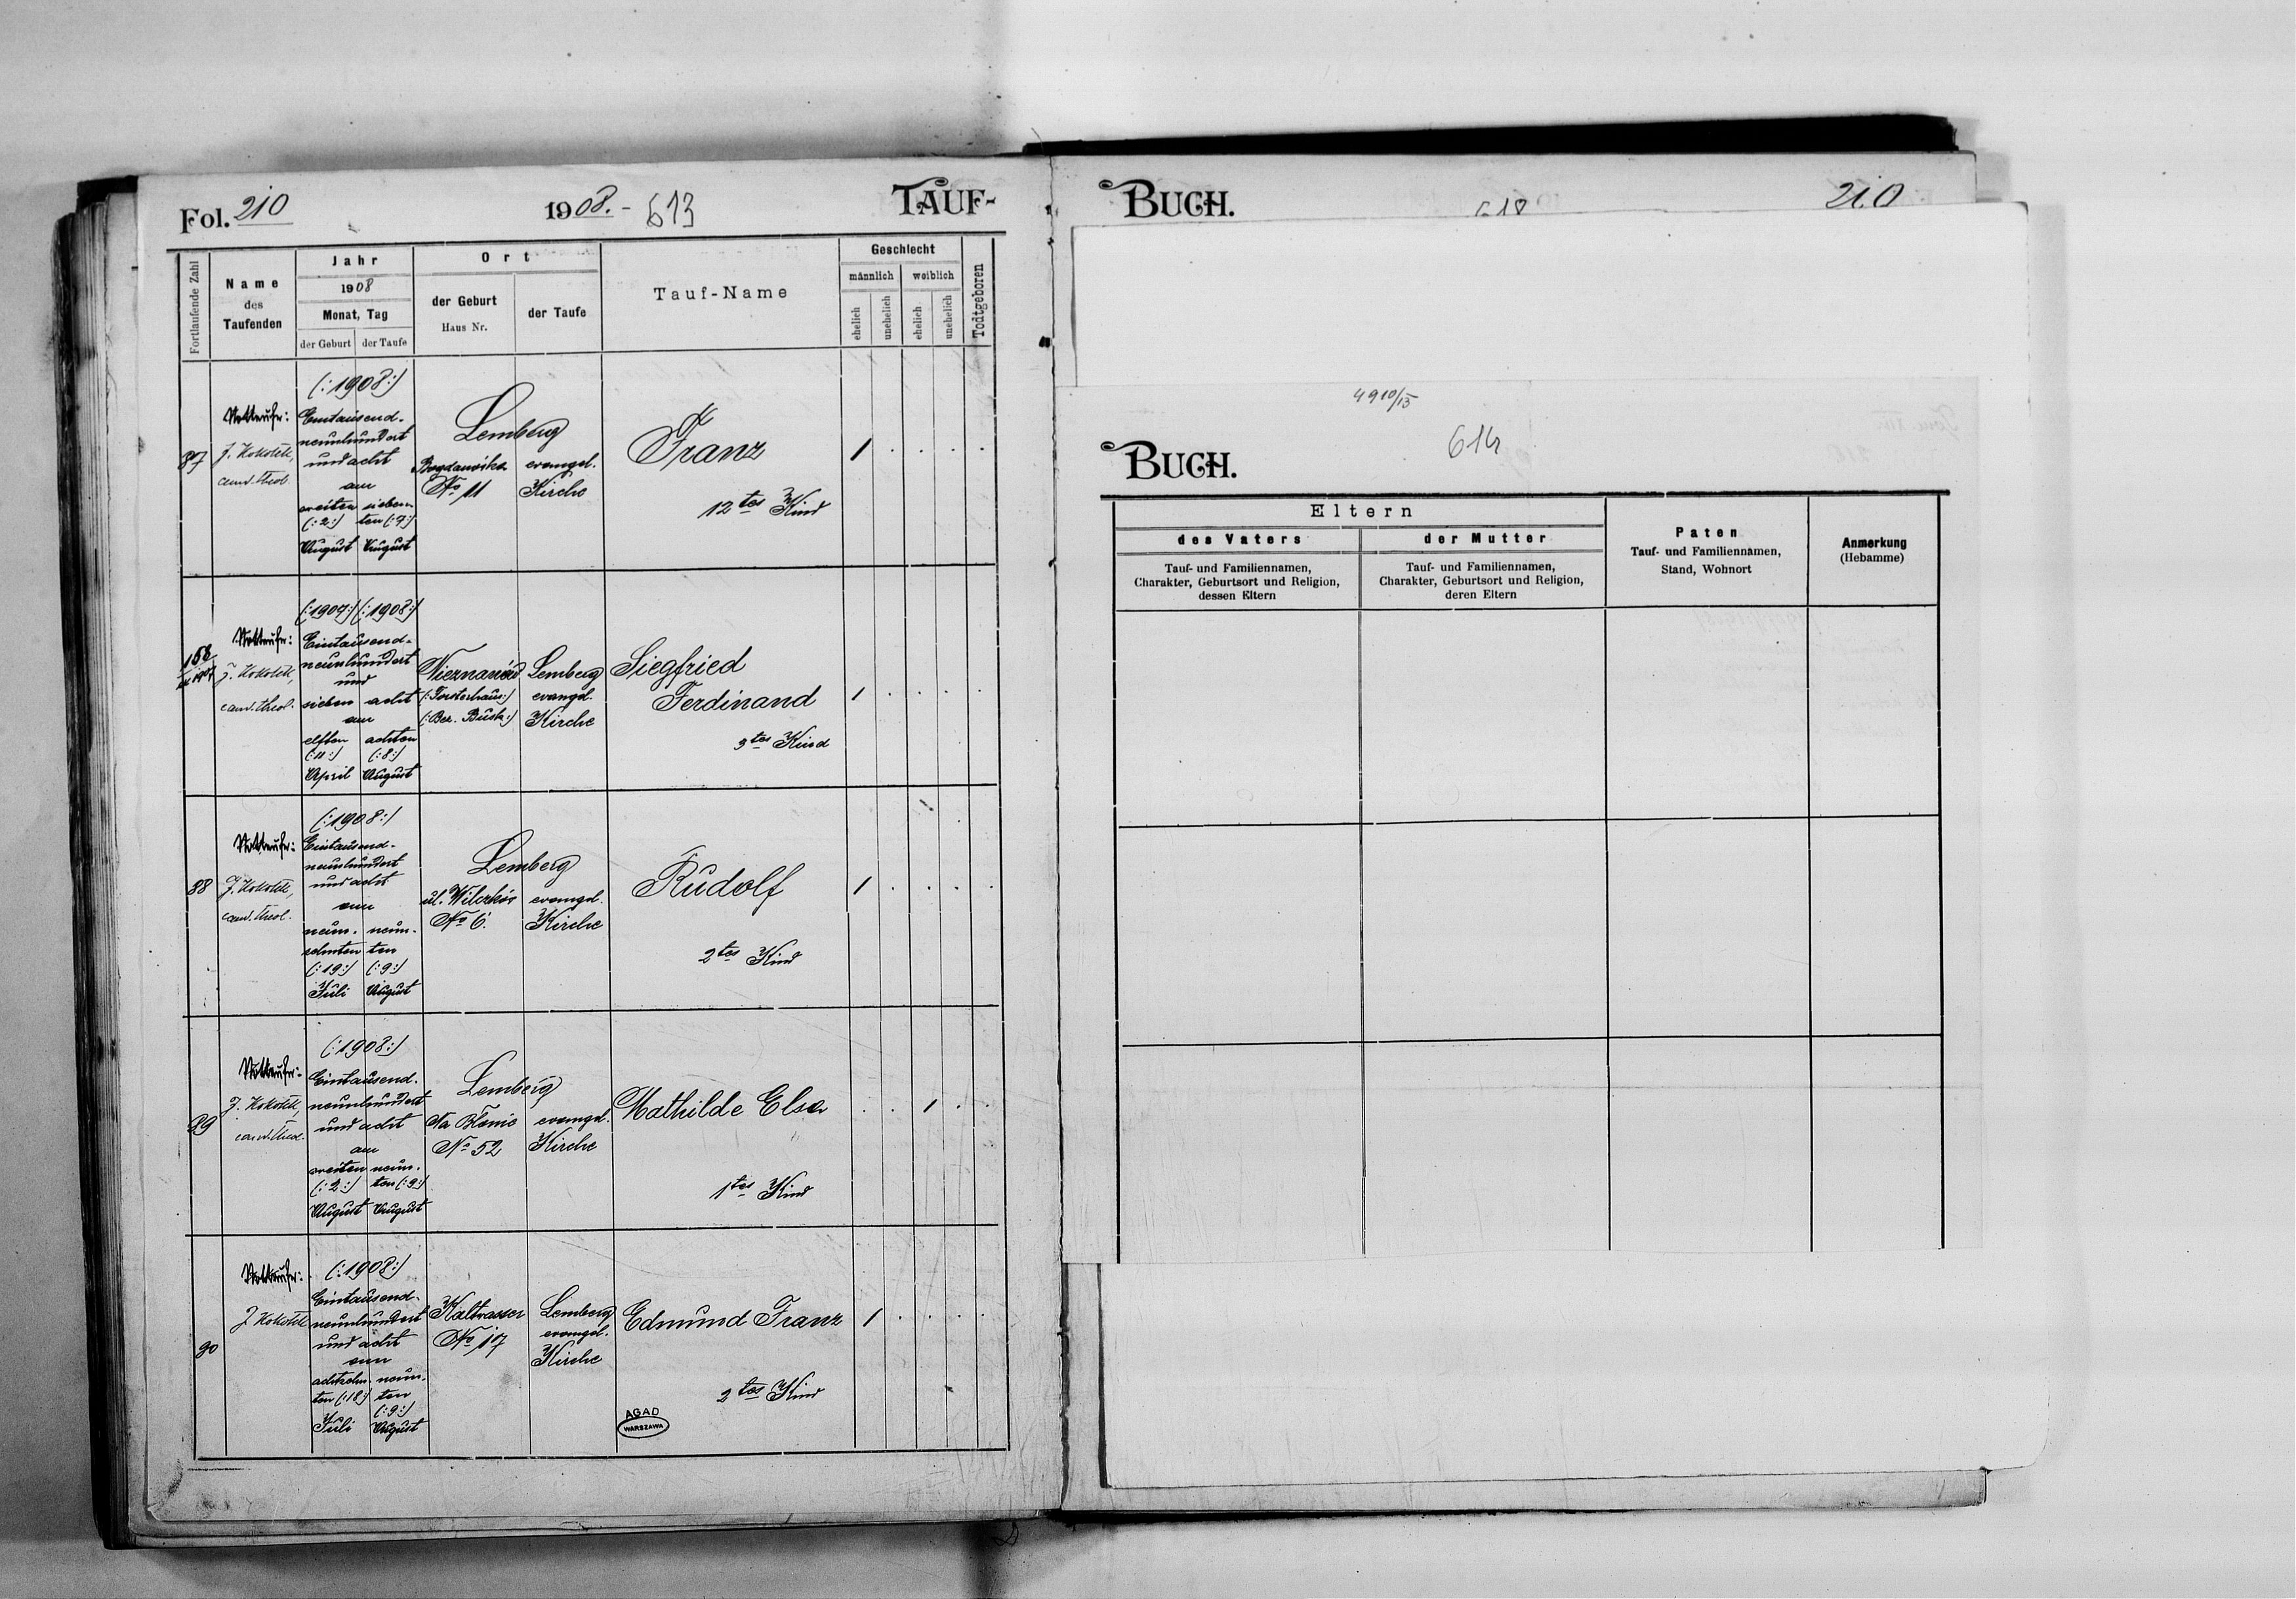 Fol. 210
1908. - 613
TAUF-
Fortlaufende Zahl
Name
des
Taufenden
Jahr
1908
Monat, Tag
der Geburt
der Taufe
Ort
der Geburt
Haus Nr.
der Taufe
Tauf-Name
Geschlecht
männlich
weiblich
ehelich
unehelich
ehelich
unehelich
Todtgeboren
87
J. Kokotek,
cand. theol.
(:1908:)
Eintausend-
neunhundert
und acht
am
zweiten sieben-
(:2:) ten (:7:)
August August
Lemberg
Bogdanówka evangel.
No 11 Kirche
Franz
12tes Kind
1
168
J. Kokotek,
cand. theol.
(:1907:) (:1908:)
Eintausend-
neunhundert
und
sieben acht
am
elften achten
(:11:) (:8:)
April August
Lemberg
(:Forsthaus:) evangel.
(:Bez. Busk:) Kirche
Siegfried
Ferdinand
3tes Kind
1
88
J. Kokotek,
cand. theol.
(:1908:)
Eintausend-
neunhundert
und acht
am
neun- neun-
zehnten ten
(:19:) (:9:)
Juli August
Lemberg
ul. Wilczków evangel.
No 6. Kirche
Rudolf
2tes Kind
1
89
J. Kokotek,
cand. theol.
(:1908:)
Eintausend-
neunhundert
und acht
am
zweiten neun-
(:2:) ten (:9:)
August August
Lemberg
Na Błonie evangel.
No 52 Kirche
Mathilde Elsa
1tes Kind
1
90
J. Kokotek
(:1908:)
Eintausend-
neunhundert
und acht
am
achtzehn- neun-
ten (:18:) ten
(:9:)
Juli August
Kaltwasser
No 17
Lemberg
evangel.
Kirche
Edmund Franz
2tes Kind
1
AGAD
WARSZAWA
BUCH.
210
4910/13
614
BUCH.
Eltern
des Vaters
Tauf- und Familiennamen,
Charakter, Geburtsort und Religion,
dessen Eltern
der Mutter
Tauf- und Familiennamen,
Charakter, Geburtsort und Religion,
deren Eltern
Paten
Tauf- und Familiennamen,
Stand, Wohnort
Anmerkung
(Hebamme)